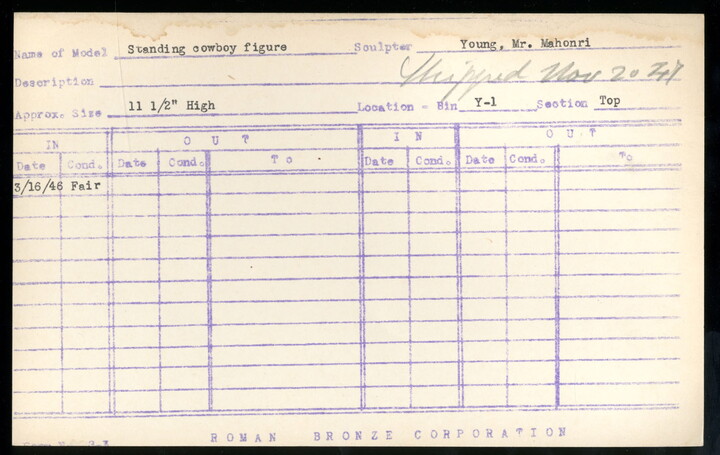 Name of Model Standing cowboy figure Sculptor Young, Mr. Mahonri
Description Shipped Nov 20 47
Approx. Size 11 1/2" High Location - Bin Y-1 Section Top
IN OUT IN OUT
Date Cond. Date Cond. To Date Cond. Date Cond. To
3/16/46 Fair
ROMAN BRONZE CORPORATION